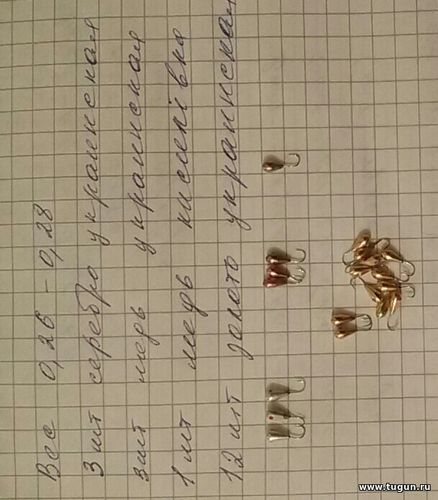 Вес 0,26 - 0,28
3 шт серебро украинская
3шт медь украинская
1 шт медь
12 шт золото украинская
www.tugun.ru